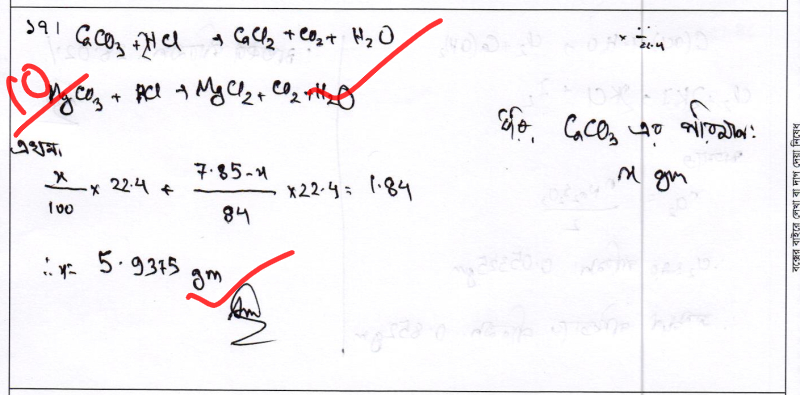 ১৭।
CaCO3 + HCl → CaCl2 + CO2 + H2O
10
MgCO3 + HCl → MgCl2 + CO2 + H2O
ধরি, CaCO3 এর পরিমাণ:
x gm
এখন,
x/100 × 22.4 + 7.85-x/84 × 22.4 = 1.84
∴ x = 5.9375 gm
Ans
বক্সের বাইরে লেখা বা দাগ দেয়া নিষেধ